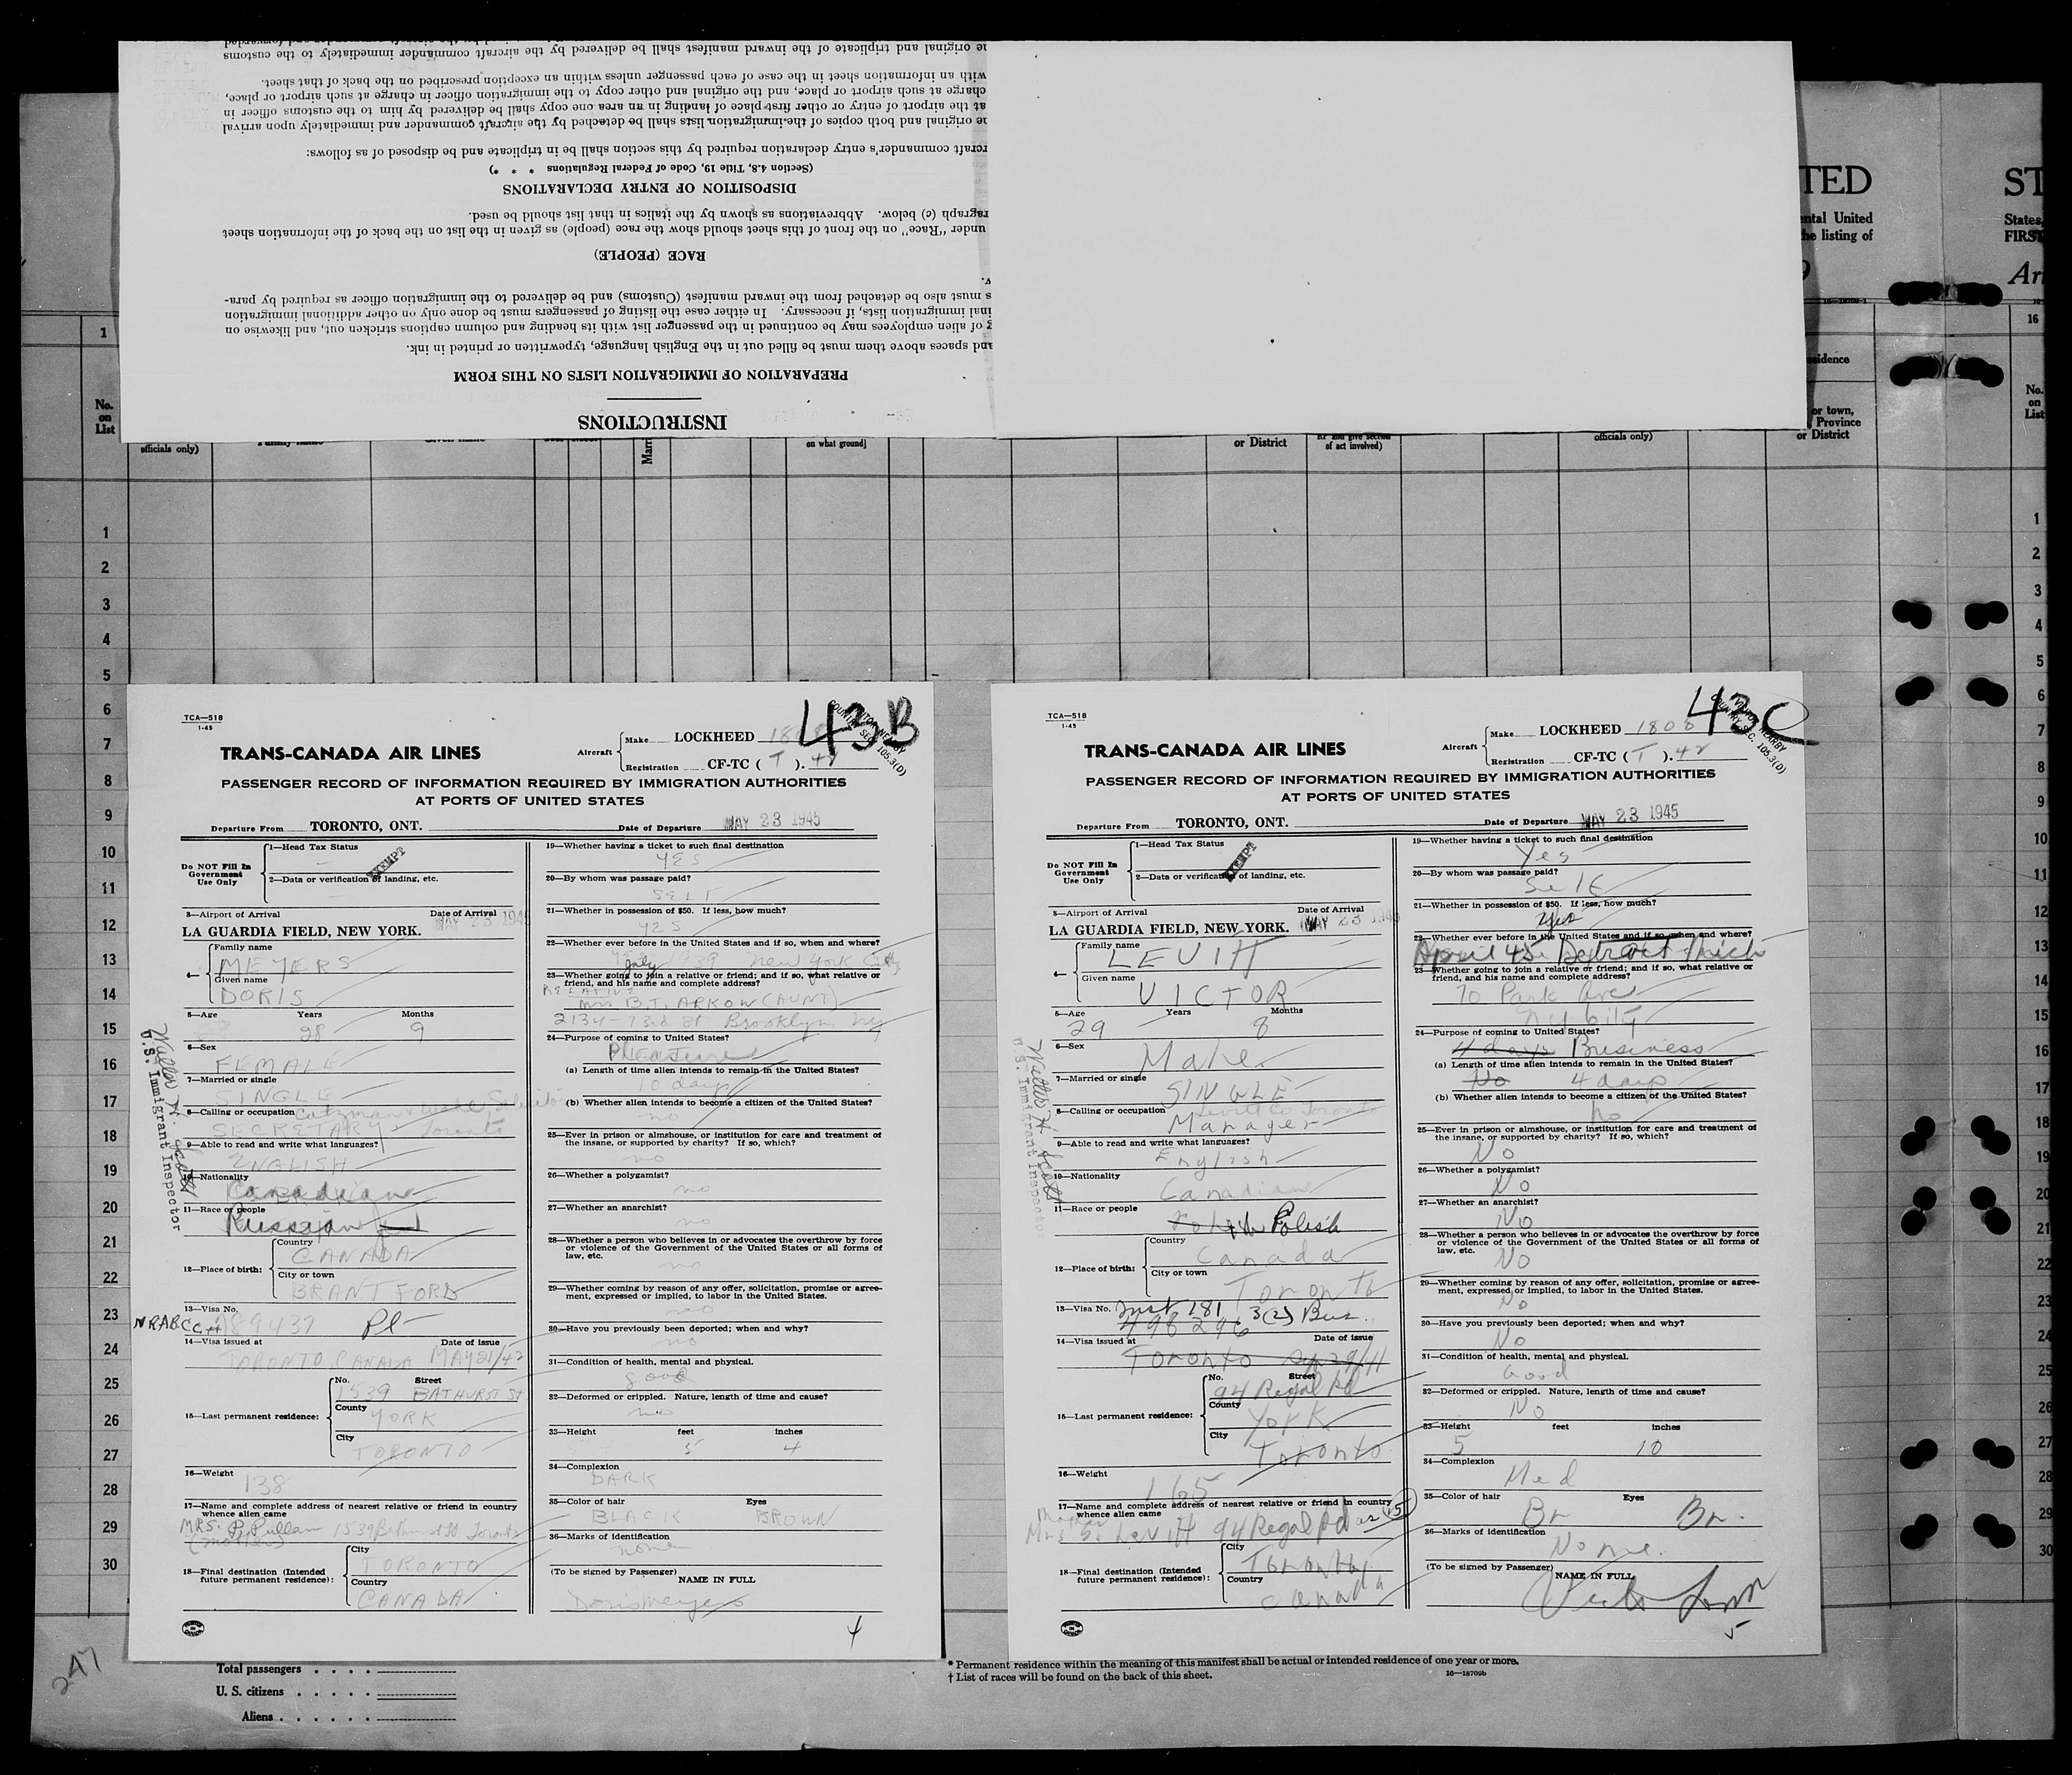 INSTRUCTIONS
PREPARATION OF IMMIGRATION LISTS ON THIS FORM
and spaces above them must be filled out in the English language, typewritten or printed in ink.
of alien employees may be continued in the passenger list with its heading and column captions stricken out, and likewise on
inal immigration lists, if necessary. In either case the listing of passengers must be done only on other additional immigration
s must also be detached from the inward manifest (Customs) and be delivered to the immigration officer as required by para-
RACE (PEOPLE)
under "Race" on the front of this sheet should show the race (people) as given in the list on the back of the information sheet
ragraph (c) below. Abbreviations as shown by the italics in that list should be used.
DISPOSITION OF ENTRY DECLARATIONS
(Section 4.8, Title 19, Code of Federal Regulations * * *)
rcraft commander's entry declaration required by this section shall be in triplicate and be disposed of as follows:
he original and both copies of the immigration lists shall be detached by the aircraft commander and immediately upon arrival
at the airport of entry or other first place of landing in an area one copy shall be delivered by him to the customs officer in
charge at such airport or place, and the original and other copy to the immigration officer in charge at such airport or place,
with an information sheet in the case of each passenger unless within an exception prescribed on the back of that sheet.
he original and triplicate of the inward manifest shall be delivered by the aircraft commander immediately to the customs
TED
ental United
he listing of
ST
States,
FIRST
Arr
1
16
No.
on
List
officials only)
on what ground]
or District
of act involved)
officials only)
sidence
or town,
Province
or District
No.
on
List
1
2
3
4
5
6
7
8
9
10
11
12
13
14
15
16
17
18
19
20
21
22
23
24
25
26
27
28
29
30
TCA—518
1-45
43B
TRANS-CANADA AIR LINES
Aircraft
Make LOCKHEED
Registration CF-TC ( T ). 42
PASSENGER RECORD OF INFORMATION REQUIRED BY IMMIGRATION AUTHORITIES
AT PORTS OF UNITED STATES
Departure From TORONTO, ONT. Date of Departure MAY 23 1945
Do NOT Fill In Government Use Only
1—Head Tax Status
EXEMPT
2—Data or verification of landing, etc.
3—Airport of Arrival Date of Arrival
LA GUARDIA FIELD, NEW YORK. MAY 23 1945
4— Family name
MEYERS
Given name
DORIS
5—Age Years Months
28 9
6—Sex
FEMALE
7—Married or single
SINGLE
8—Calling or occupation
SECRETARY Toronto
9—Able to read and write what languages?
ENGLISH
10—Nationality
Canadian
11—Race or people
Russian
12—Place of birth: Country
CANADA
City or town
BRANTFORD
13—Visa No.
14—Visa issued at Date of issue
TORONTO, CANADA MAY 21/42
15—Last permanent residence: No. Street
1539 BATHURST ST
County
YORK
City
TORONTO
16—Weight
138
17—Name and complete address of nearest relative or friend in country whence alien came
MRS. P. Pullam 1539 Bathurst St Toronto
(mother)
18—Final destination (Intended future permanent residence): City
TORONTO
Country
CANADA
19—Whether having a ticket to such final destination
YES
20—By whom was passage paid?
SELF
21—Whether in possession of $50. If less, how much?
YES
22—Whether ever before in the United States and if so, when and where?
July 1939 New York City
23—Whether going to join a relative or friend; and if so, what relative or
friend, and his name and complete address?
RELATIVE
Mrs B.T. ARKOW (AUNT)
2134 - 73rd St Brooklyn NY
24—Purpose of coming to United States?
Pleasure
(a) Length of time alien intends to remain in the United States?
10 days
(b) Whether alien intends to become a citizen of the United States?
no
25—Ever in prison or almshouse, or institution for care and treatment of
the insane, or supported by charity? If so, which?
no
26—Whether a polygamist?
no
27—Whether an anarchist?
no
28—Whether a person who believes in or advocates the overthrow by force
or violence of the Government of the United States or all forms of
law, etc.
no
29—Whether coming by reason of any offer, solicitation, promise or agree-
ment, expressed or implied, to labor in the United States.
no
30—Have you previously been deported; when and why?
no
31—Condition of health, mental and physical.
good
32—Deformed or crippled. Nature, length of time and cause?
no
33—Height feet inches
5 4
34—Complexion
DARK
35—Color of hair Eyes
BLACK BROWN
36—Marks of identification
none
(To be signed by Passenger) NAME IN FULL
Doris Meyers
4
U.S. Immigrant Inspector
TCA—518
1-45
43C
TRANS-CANADA AIR LINES
Aircraft
Make LOCKHEED 1808
Registration CF-TC ( T ). 42
PASSENGER RECORD OF INFORMATION REQUIRED BY IMMIGRATION AUTHORITIES
AT PORTS OF UNITED STATES
Departure From TORONTO, ONT. Date of Departure MAY 23 1945
Do NOT Fill In Government Use Only
1—Head Tax Status
EXEMPT
2—Data or verification of landing, etc.
3—Airport of Arrival Date of Arrival
LA GUARDIA FIELD, NEW YORK. MAY 23 1945
4— Family name
LEVITT
Given name
VICTOR
5—Age Years Months
29 8
6—Sex
Male
7—Married or single
SINGLE
8—Calling or occupation Levitt Co Toronto
Manager
9—Able to read and write what languages?
English
10—Nationality
Canadian
11—Race or people
Polish
12—Place of birth: Country
Canada
City or town
Toronto
13—Visa No. 181 3(2) Bus.
498296
14—Visa issued at Date of issue
Toronto
15—Last permanent residence: No. Street
94 Regal Rd
County
York
City
Toronto
16—Weight
165
17—Name and complete address of nearest relative or friend in country whence alien came
Mother
Mrs S. Levitt 94 Regal Rd
18—Final destination (Intended future permanent residence): City
Toronto
Country
Canada
19—Whether having a ticket to such final destination
Yes
20—By whom was passage paid?
Self
21—Whether in possession of $50. If less, how much?
Yes
22—Whether ever before in the United States and if so, when and where?
April 45 Detroit Mich
23—Whether going to join a relative or friend; and if so, what relative or
friend, and his name and complete address?
70 Park Ave
NY City
24—Purpose of coming to United States?
4 days Business
(a) Length of time alien intends to remain in the United States?
No 4 days
(b) Whether alien intends to become a citizen of the United States?
No
25—Ever in prison or almshouse, or institution for care and treatment of
the insane, or supported by charity? If so, which?
No
26—Whether a polygamist?
No
27—Whether an anarchist?
No
28—Whether a person who believes in or advocates the overthrow by force
or violence of the Government of the United States or all forms of
law, etc.
No
29—Whether coming by reason of any offer, solicitation, promise or agree-
ment, expressed or implied, to labor in the United States.
No
30—Have you previously been deported; when and why?
No
31—Condition of health, mental and physical.
Good
32—Deformed or crippled. Nature, length of time and cause?
No
33—Height feet inches
5 10
34—Complexion
Med
35—Color of hair Eyes
Br Br.
36—Marks of identification
None.
(To be signed by Passenger) NAME IN FULL
5
U.S. Immigrant Inspector
247
Total passengers
U. S. citizens
Aliens
* Permanent residence within the meaning of this manifest shall be actual or intended residence of one year or more.
† List of races will be found on the back of this sheet. 16—18709b